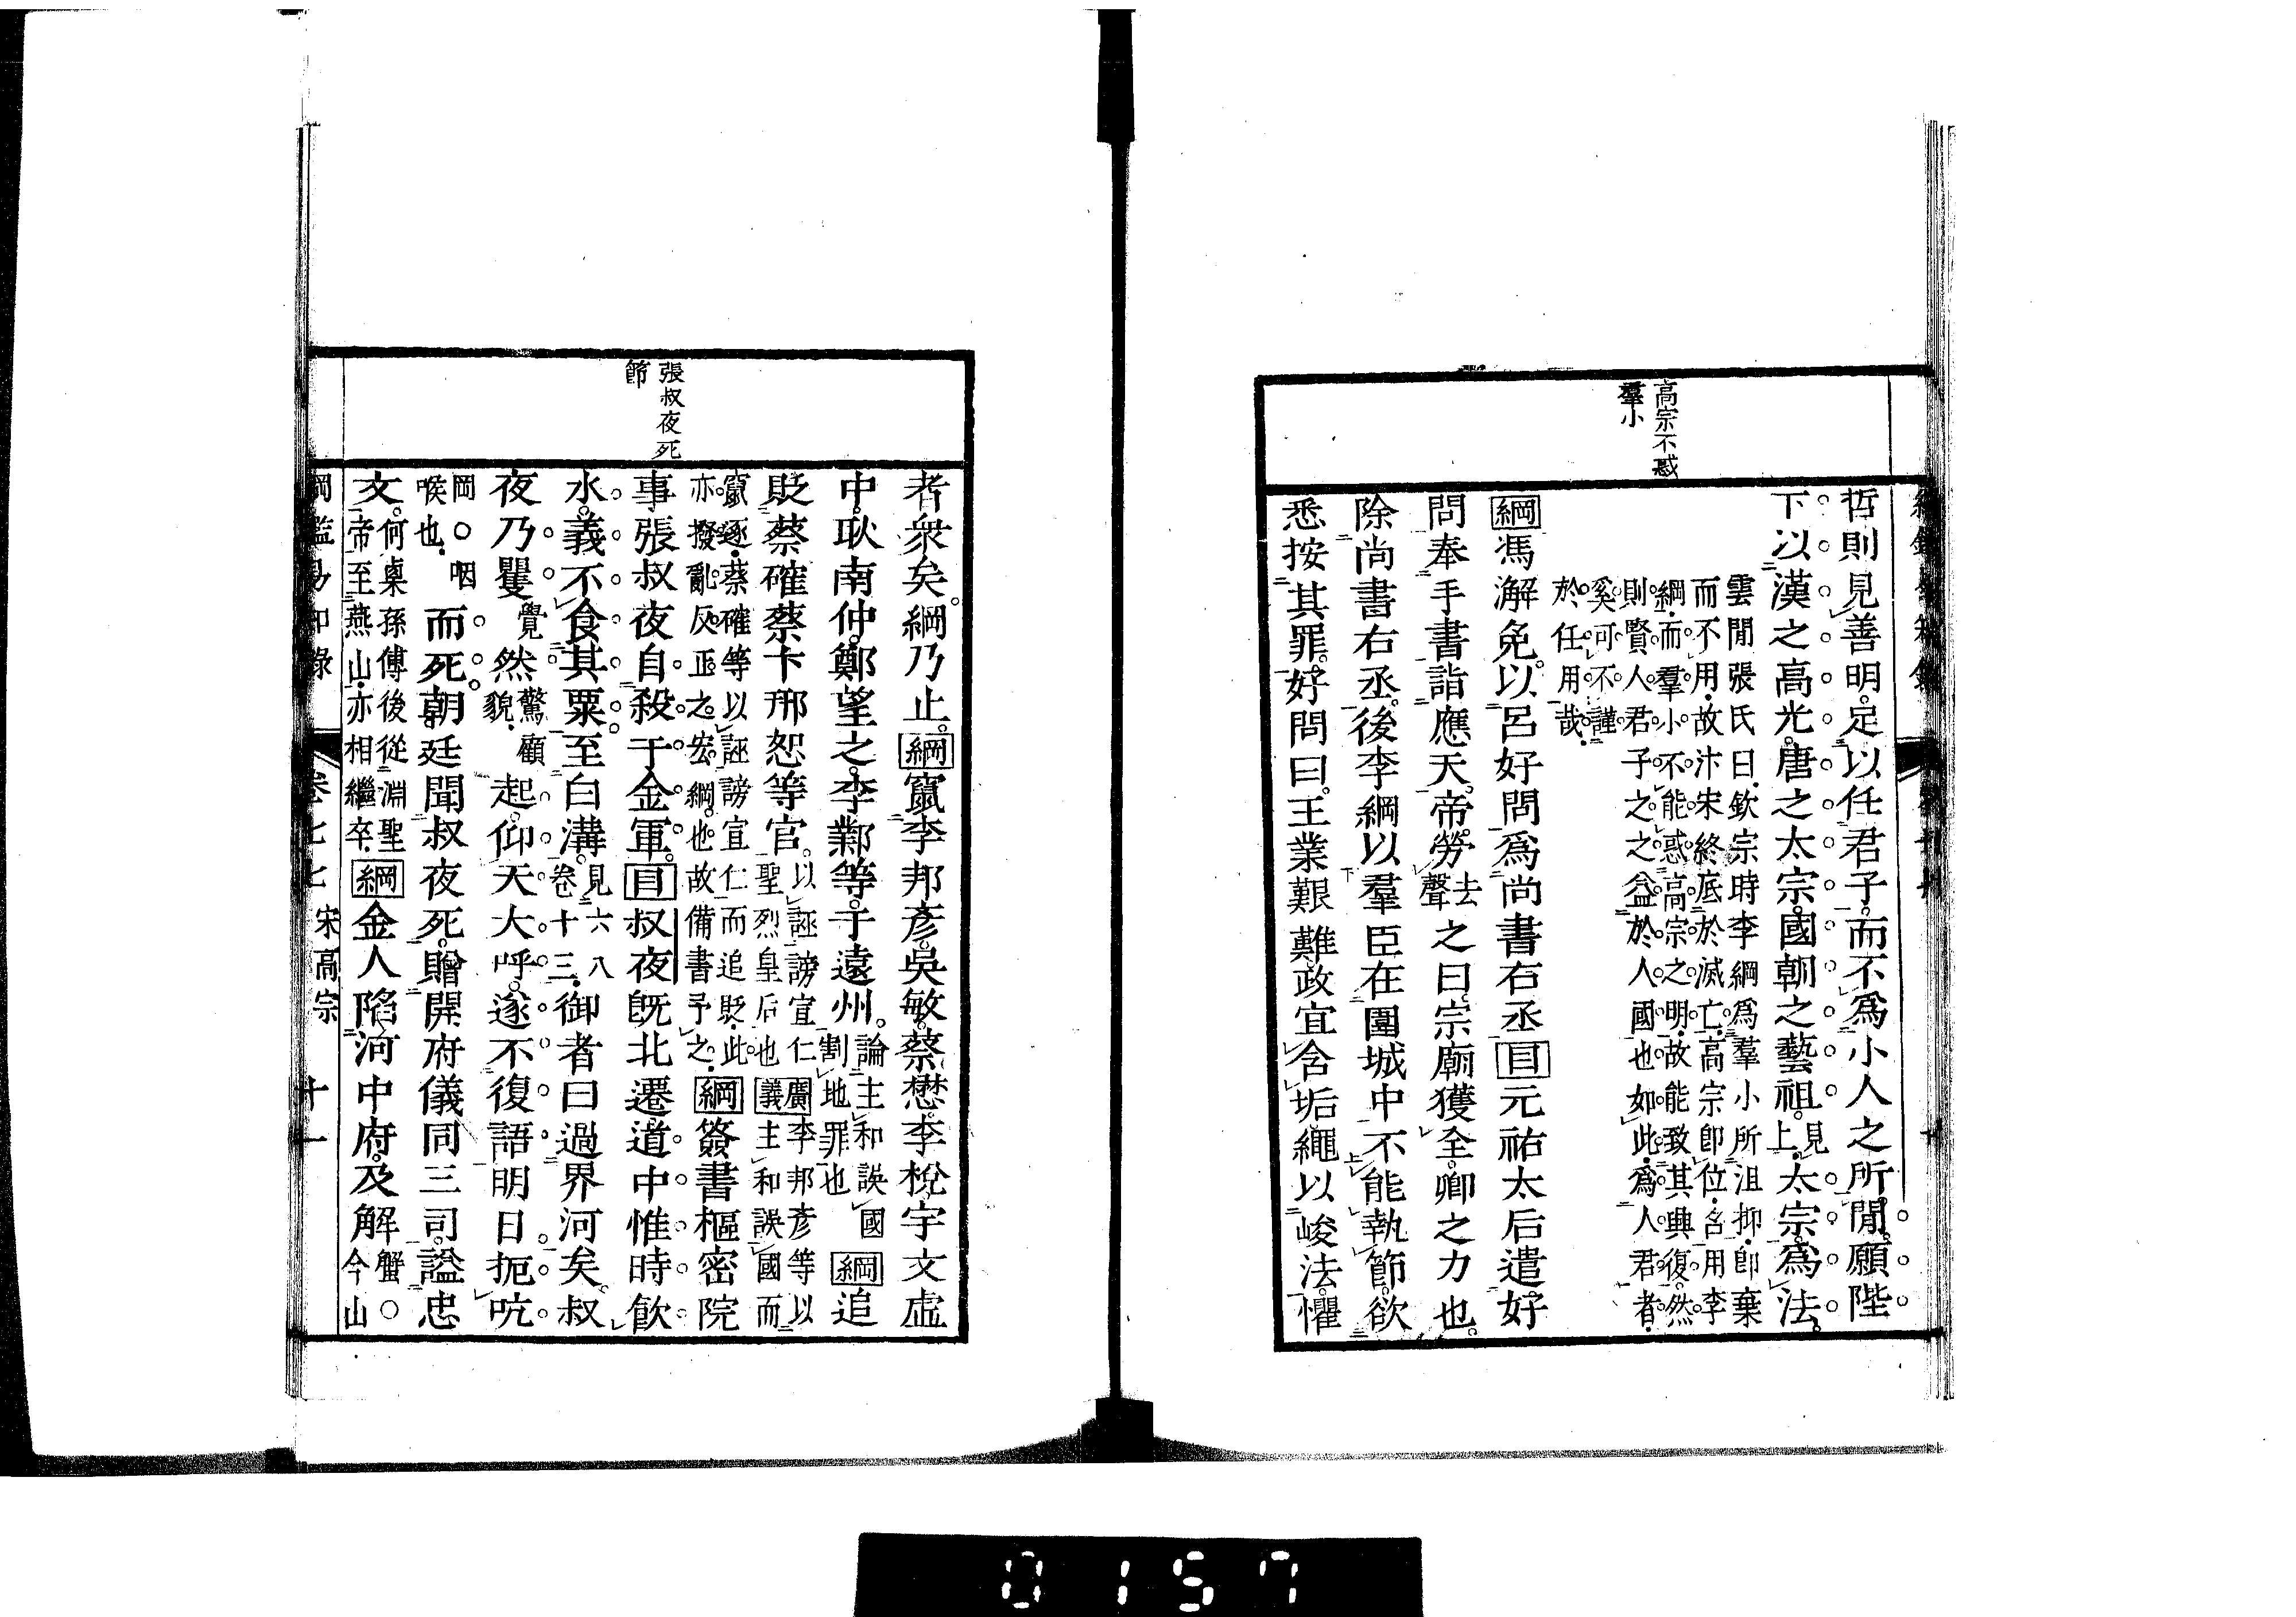 高宗不惑
羣小
哲則見善明足以任君子而不為小人之所閒願陛
下以漢之高光唐之太宗國朝之藝祖見上太宗為法
雲閒張氏曰欽宗時李綱為羣小所沮抑即棄
而不用故汴宋終底於滅亡高宗即位召用李
綱而羣小不能惑高宗之明故能致其興復然
則賢人君子之之益於人國也如此為人君者
奚可不謹
於任用哉
綱馮澥免以呂好問為尚書右丞目元祐太后遣好
問奉手書詣應天帝勞去聲之曰宗廟獲全卿之力也
除尚書右丞後李綱以羣臣在圍城中不能執節欲
悉按其罪好問曰王業艱難政宜含垢繩以峻法懼
張叔夜死
節
者衆矣綱乃止綱竄李邦彥吳敏蔡懋李梲宇文虛
中耿南仲鄭望之李鄴等于遠州論主和誤國割地罪也綱追
貶蔡確蔡卞邢恕等官以誣謗宣仁聖烈皇后也廣義李邦彥等以主和誤國而
竄逐蔡確等以誣謗宣仁而追貶此亦撥亂反正之宏綱也故備書予之綱簽書樞密院
事張叔夜自殺于金軍目叔夜既北遷道中惟時飲
水義不食其粟至白溝見六八卷十三御者曰過界河矣叔
夜乃矍覺然驚顧貌起仰天大呼遂不復語明日扼吭
岡〇咽喉也而死朝廷聞叔夜死贈開府儀同三司諡忠
文何㮚孫傅後從淵聖帝至燕山亦相繼卒綱金人陷河中府及解蟹〇今山
綱鑑易知錄 卷七七 宋高宗 十一